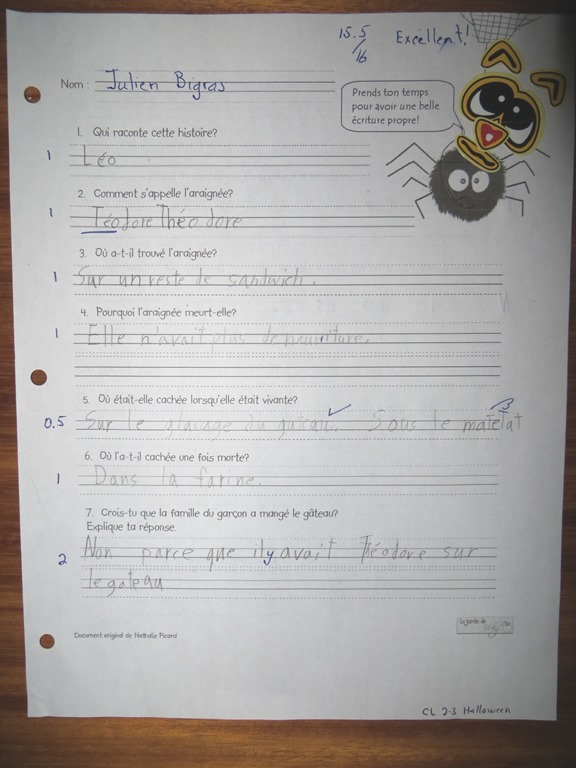 15.5
16
Excellent!
Nom : Julien Bigras
Prends ton temps
pour avoir une belle
écriture propre!
1. Qui raconte cette histoire?
1 Léo
2. Comment s'appelle l'araignée?
1 Téodore Théodore
3. Où a-t-il trouvé l'araignée?
1 Sur un reste de sandwich.
4. Pourquoi l'araignée meurt-elle?
1 Elle n'avait plus de nourriture.
5. Où était-elle cachée lorsqu'elle était vivante?
0.5 Sur le glaçage du gâteau. Sous le matelat
6. Où l'a-t-il cachée une fois morte?
1 Dans la farine.
7. Crois-tu que la famille du garçon a mangé le gâteau?
Explique ta réponse.
2 Non parce que il y avait Théodore sur
le gateau
Document original de Nathalie Picard
CL 2-3 Helloween